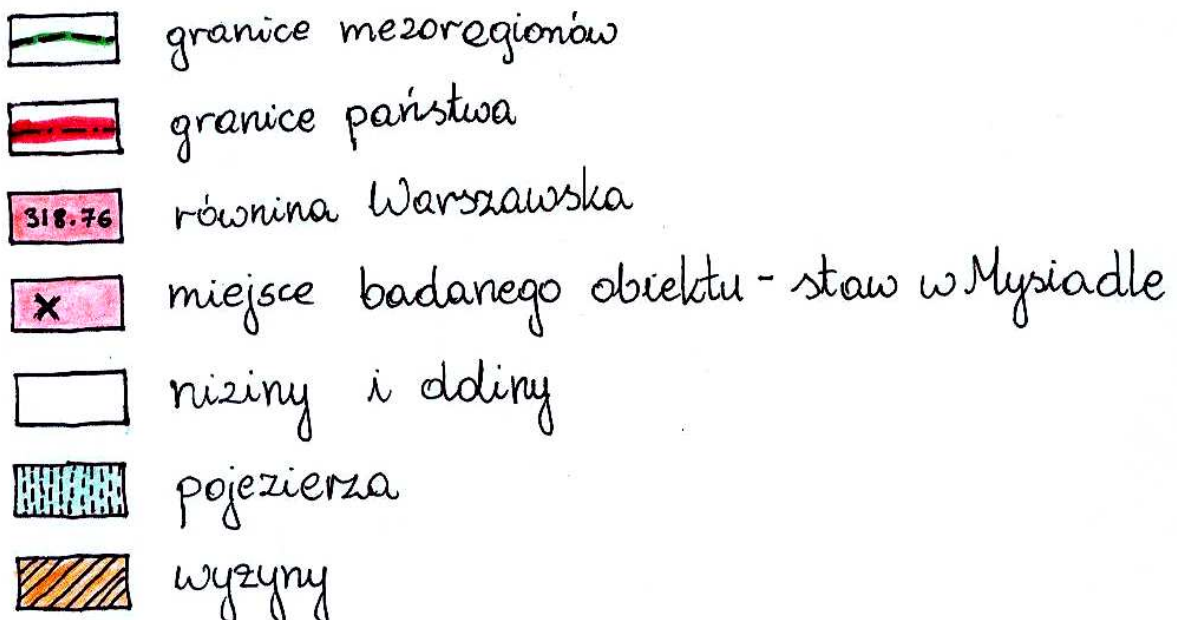 granice mezoregionów
granice państwa
318.76 równina Warszawska
x miejsce badanego obiektu - staw w Mysiadle
niziny i doliny
pojezierza
wyżyny